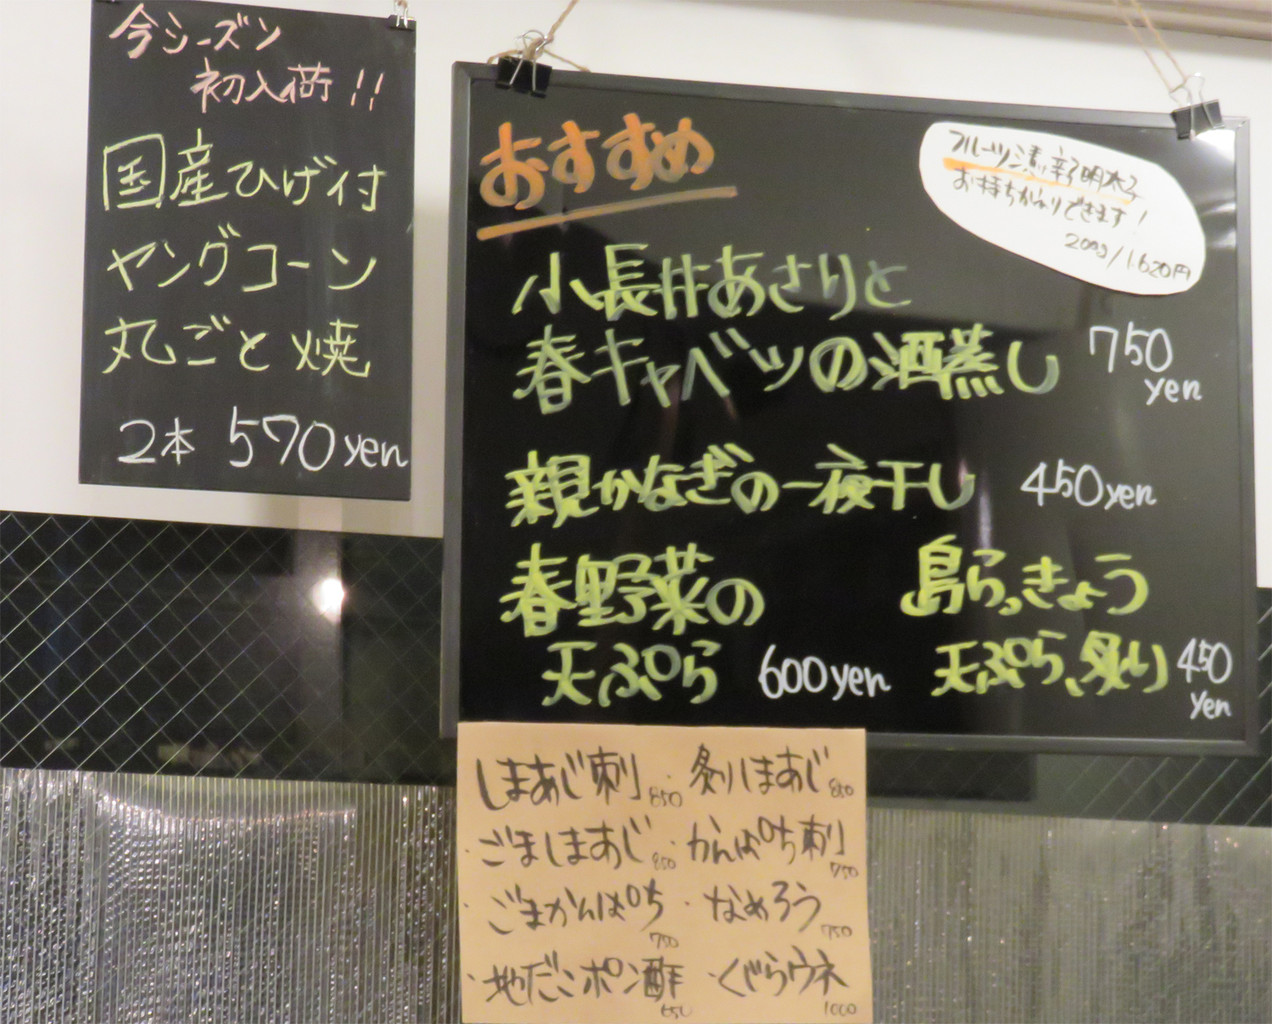 今シーズン
初入荷!!
国産ひげ付
ヤングコーン
丸ごと焼
2本 570yen
おすすめ
フルーツ漬け辛子明太子
お持ちかえりできます!
200g/1620円
小長井あさりと
春キャベツの酒蒸し 750yen
親かなぎの一夜干し 450yen
春野菜の
天ぷら 600yen
島らっきょう
天ぷら、炙り 450yen
しまあじ刺 850
・炙りしまあじ 850
・ごましまあじ 850
・かんぱち刺 750
・ごまかんぱち 750
・なめろう 750
・地だこポン酢 650
・くじらウネ 1000